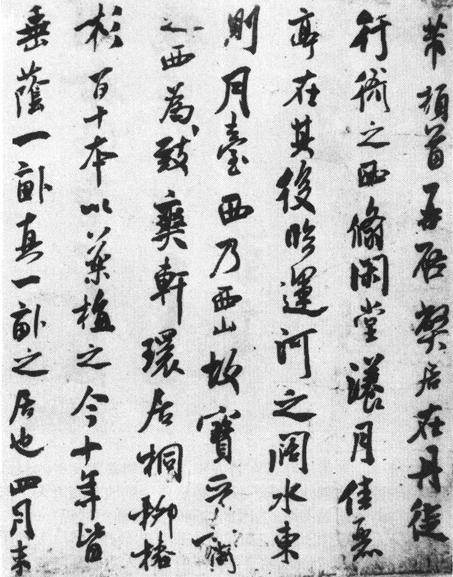 芾頓首再啓弊居在丹徒
行衙之西翛閑堂漾月佳麗
亭在其後臨運河之闊水東
則月臺西乃西山故寶晉齋
之西為致爽軒環居桐柳椿
杉百十本以藥植之今十年皆
垂蔭一畝真一畝之居也四月末